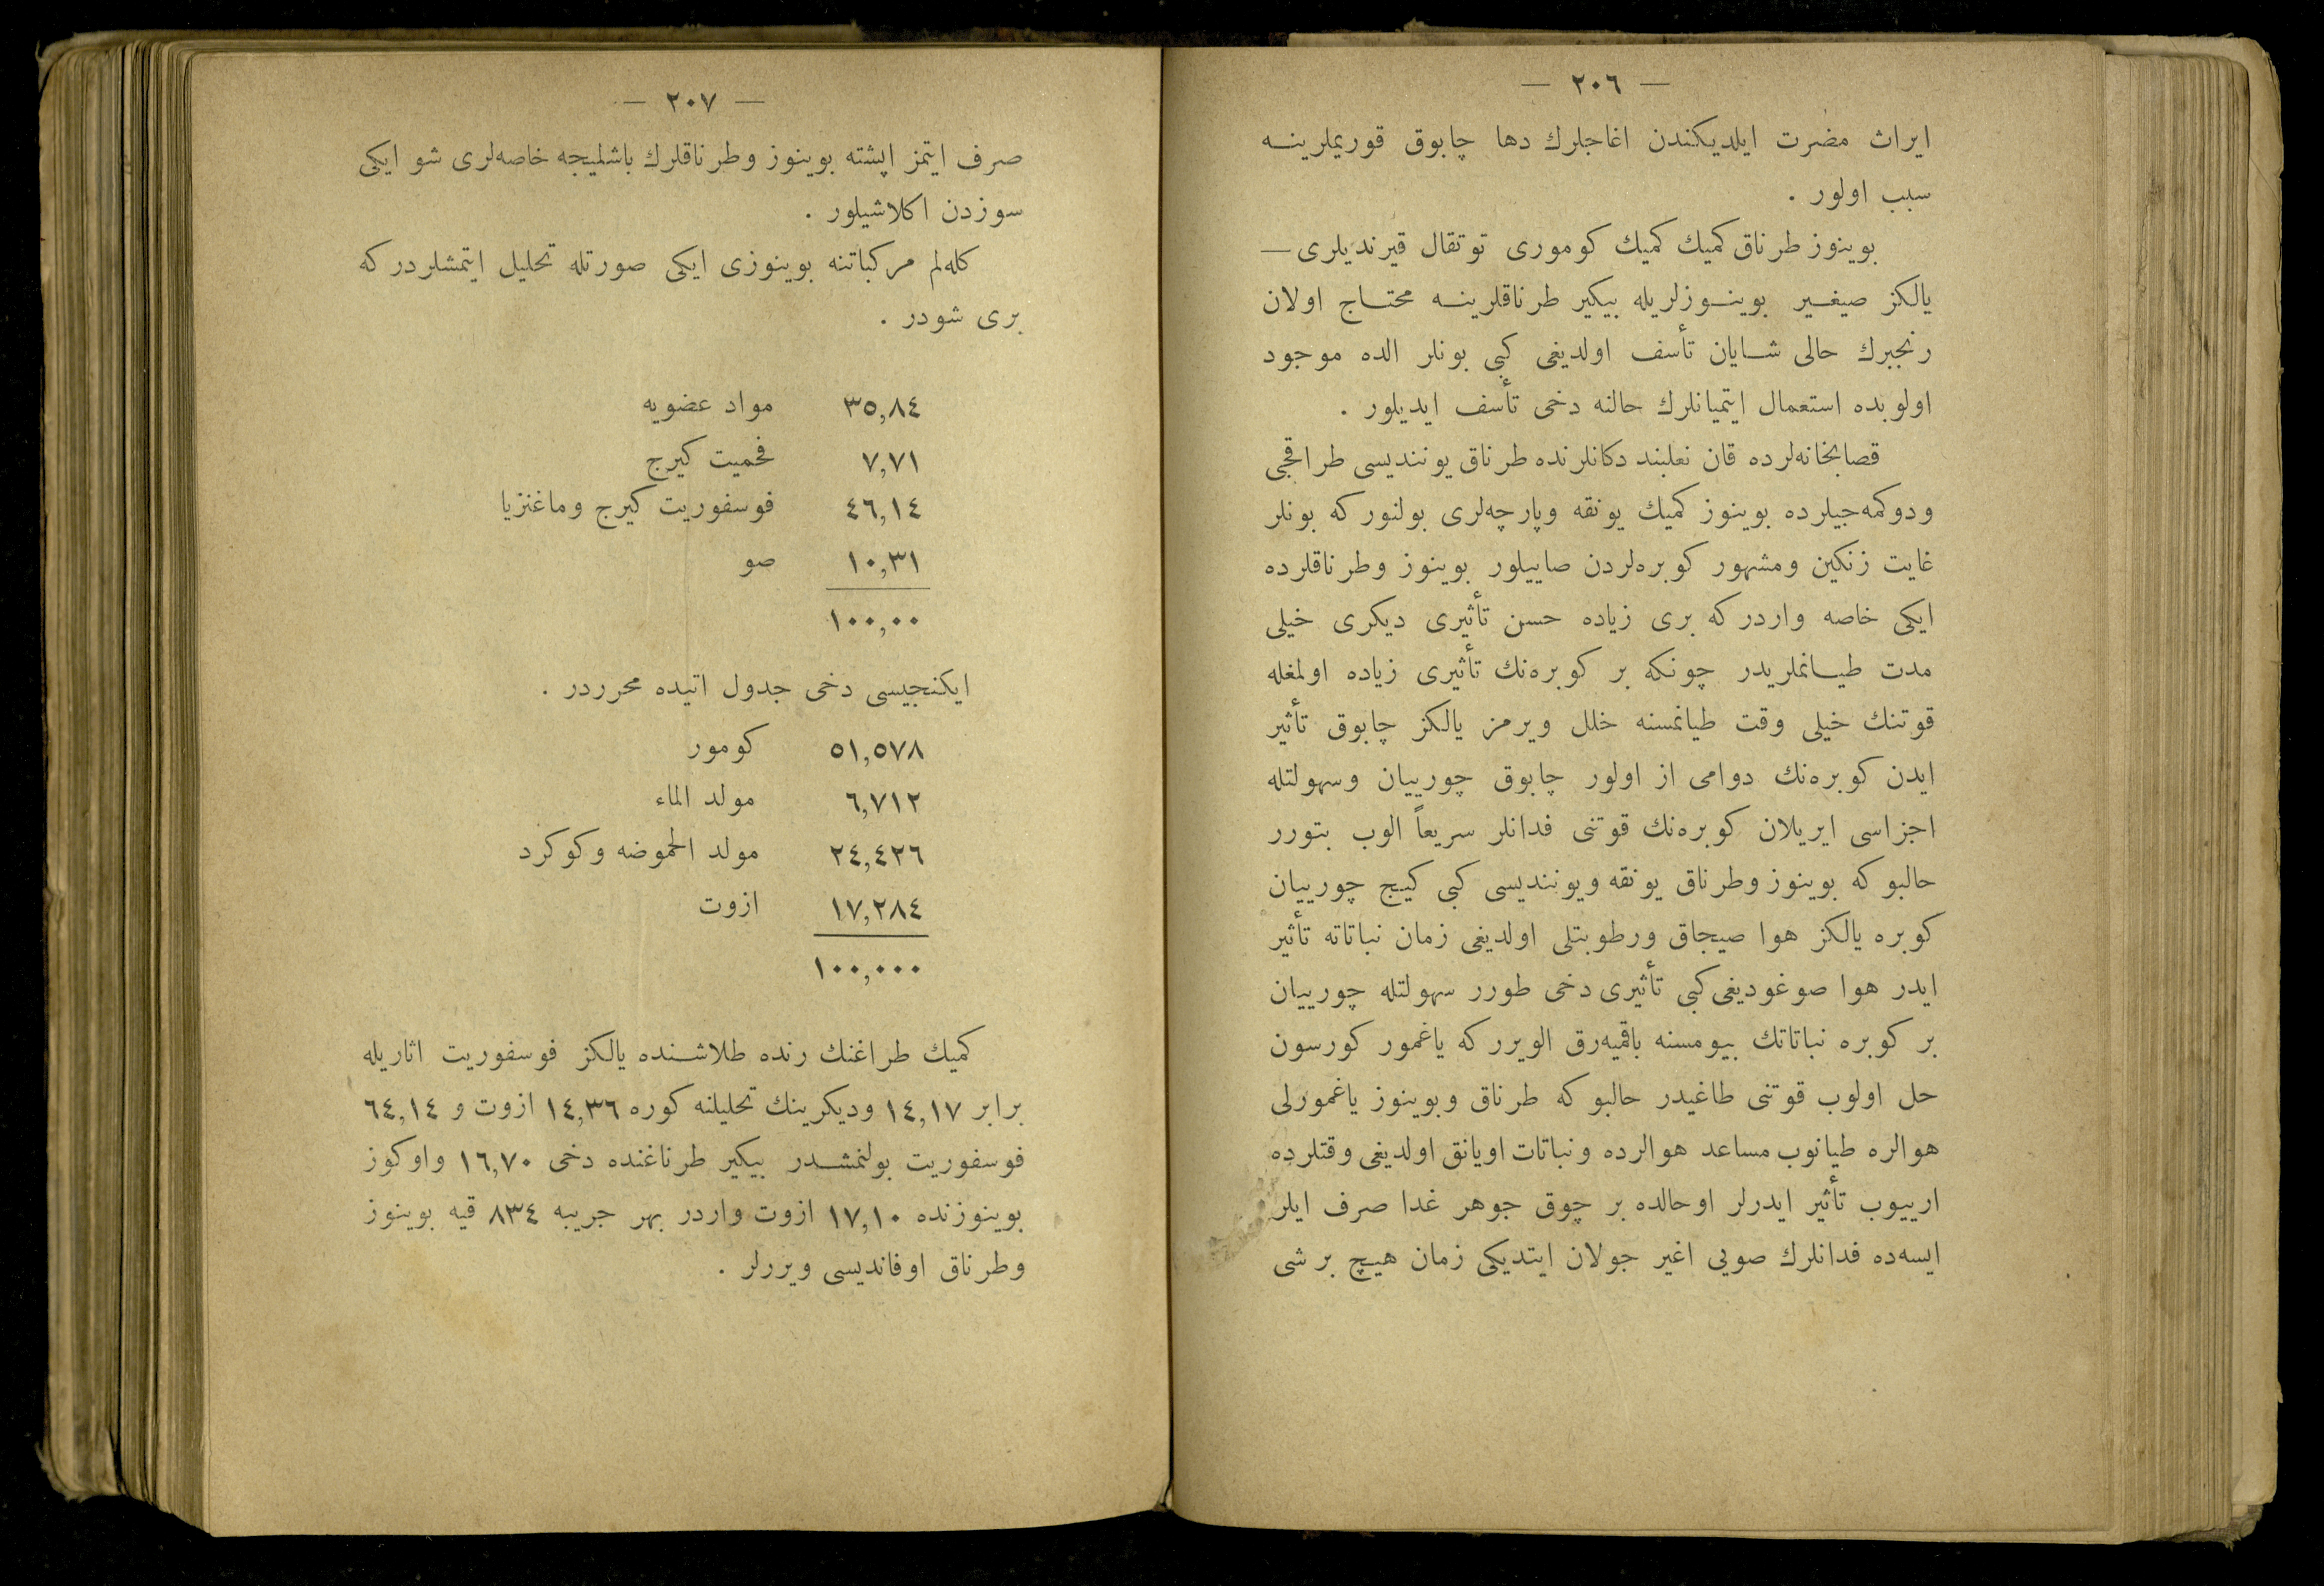 — ٢٠٦ —
ايراث مضرت ايلديكندن اغاجلرك دها چابوق قوريملرينه
سبب اولور .
بوينوز طرناق كميك كميك كومورى توتقال قيرنديلرى —
يالكز صيغير بوينوزلريله بيكير طرناقلرينه محتاج اولان
رنجبرك حالى شايان تأسف اولديغى كبى بونلر الده موجود
اولوبده استعمال ايتميانلرك حالنه دخى تأسف ايديلور .
قصابخانه‌لرده قان نعلبند دكانلرنده طرناق يوننديسى طراقجى
ودوكمه‌جيلرده بوينوز كميك يونقه وپارچه‌لرى بولنور كه بونلر
غايت زنكين ومشهور كوبره‌لردن صاييلور بوينوز وطرناقلرده
ايكى خاصه واردر كه برى زياده حسن تأثيرى ديكرى خيلى
مدت طيانملريدر چونكه بر كوبره‌نك تأثيرى زياده اولمغله
قوتنك خيلى وقت طيانمسنه خلل ويرمز يالكز چابوق تأثير
ايدن كوبره‌نك دوامى از اولور چابوق چورييان وسهولتله
اجزاسى ايريلان كوبره‌نك قوتنى فدانلر سريعاً الوب بتورر
حالبو كه بوينوز وطرناق يونقه ويوننديسى كبى كيج چورييان
كوبره يالكز هوا صيجاق ورطوبتلى اولديغى زمان نباتاته تأثير
ايدر هوا صوغوديغى كبى تأثيرى دخى طورر سهولتله چورييان
بر كوبره نباتاتك بيومسنه باقميه‌رق الويرر كه ياغمور كورسون
حل اولوب قوتنى طاغيدر حالبو كه طرناق وبوينوز ياغمورلى
هوالره طيانوب مساعد هوالرده ونباتات اويانق اولديغى وقتلرده
ارييوب تأثير ايدرلر اوحالده بر چوق جوهر غدا صرف ايلر
ايسه‌ده فدانلرك صويى اغير جولان ايتديكى زمان هيچ بر شى
— ٢٠٧ —
صرف ايتمز ايشته بوينوز وطرناقلرك باشليجه خاصه‌لرى شو ايكى
سوزدن اكلاشيلور .
كله‌لم مركباتنه بوينوزى ايكى صورتله تحليل ايتمشلردر كه
برى شودر .
٣٥,٨٤ مواد عضويه
٧,٧١ فحميت كيرج
٤٦,١٤ فوسفوريت كيرج وماغنزيا
١٠,٣١ صو
١٠٠,٠٠
ايكنجيسى دخى جدول اتيده محرردر .
٥١,٥٧٨ كومور
٦,٧١٢ مولد الماء
٢٤,٤٢٦ مولد الحموضه وكوكرد
١٧,٢٨٤ ازوت
١٠٠,٠٠٠
كميك طراغنك رنده طلاشنده يالكز فوسفوريت اثاريله
برابر ١٤,١٧ وديكرينك تحليلنه كوره ١٤,٣٦ ازوت و ٦٤,١٤
فوسفوريت بولنمشدر بيكير طرناغنده دخى ١٦,٧٠ واوكوز
بوينوزنده ١٧,١٠ ازوت واردر بهر جريبه ٨٣٤ قيه بوينوز
وطرناق اوفانديسى ويررلر .